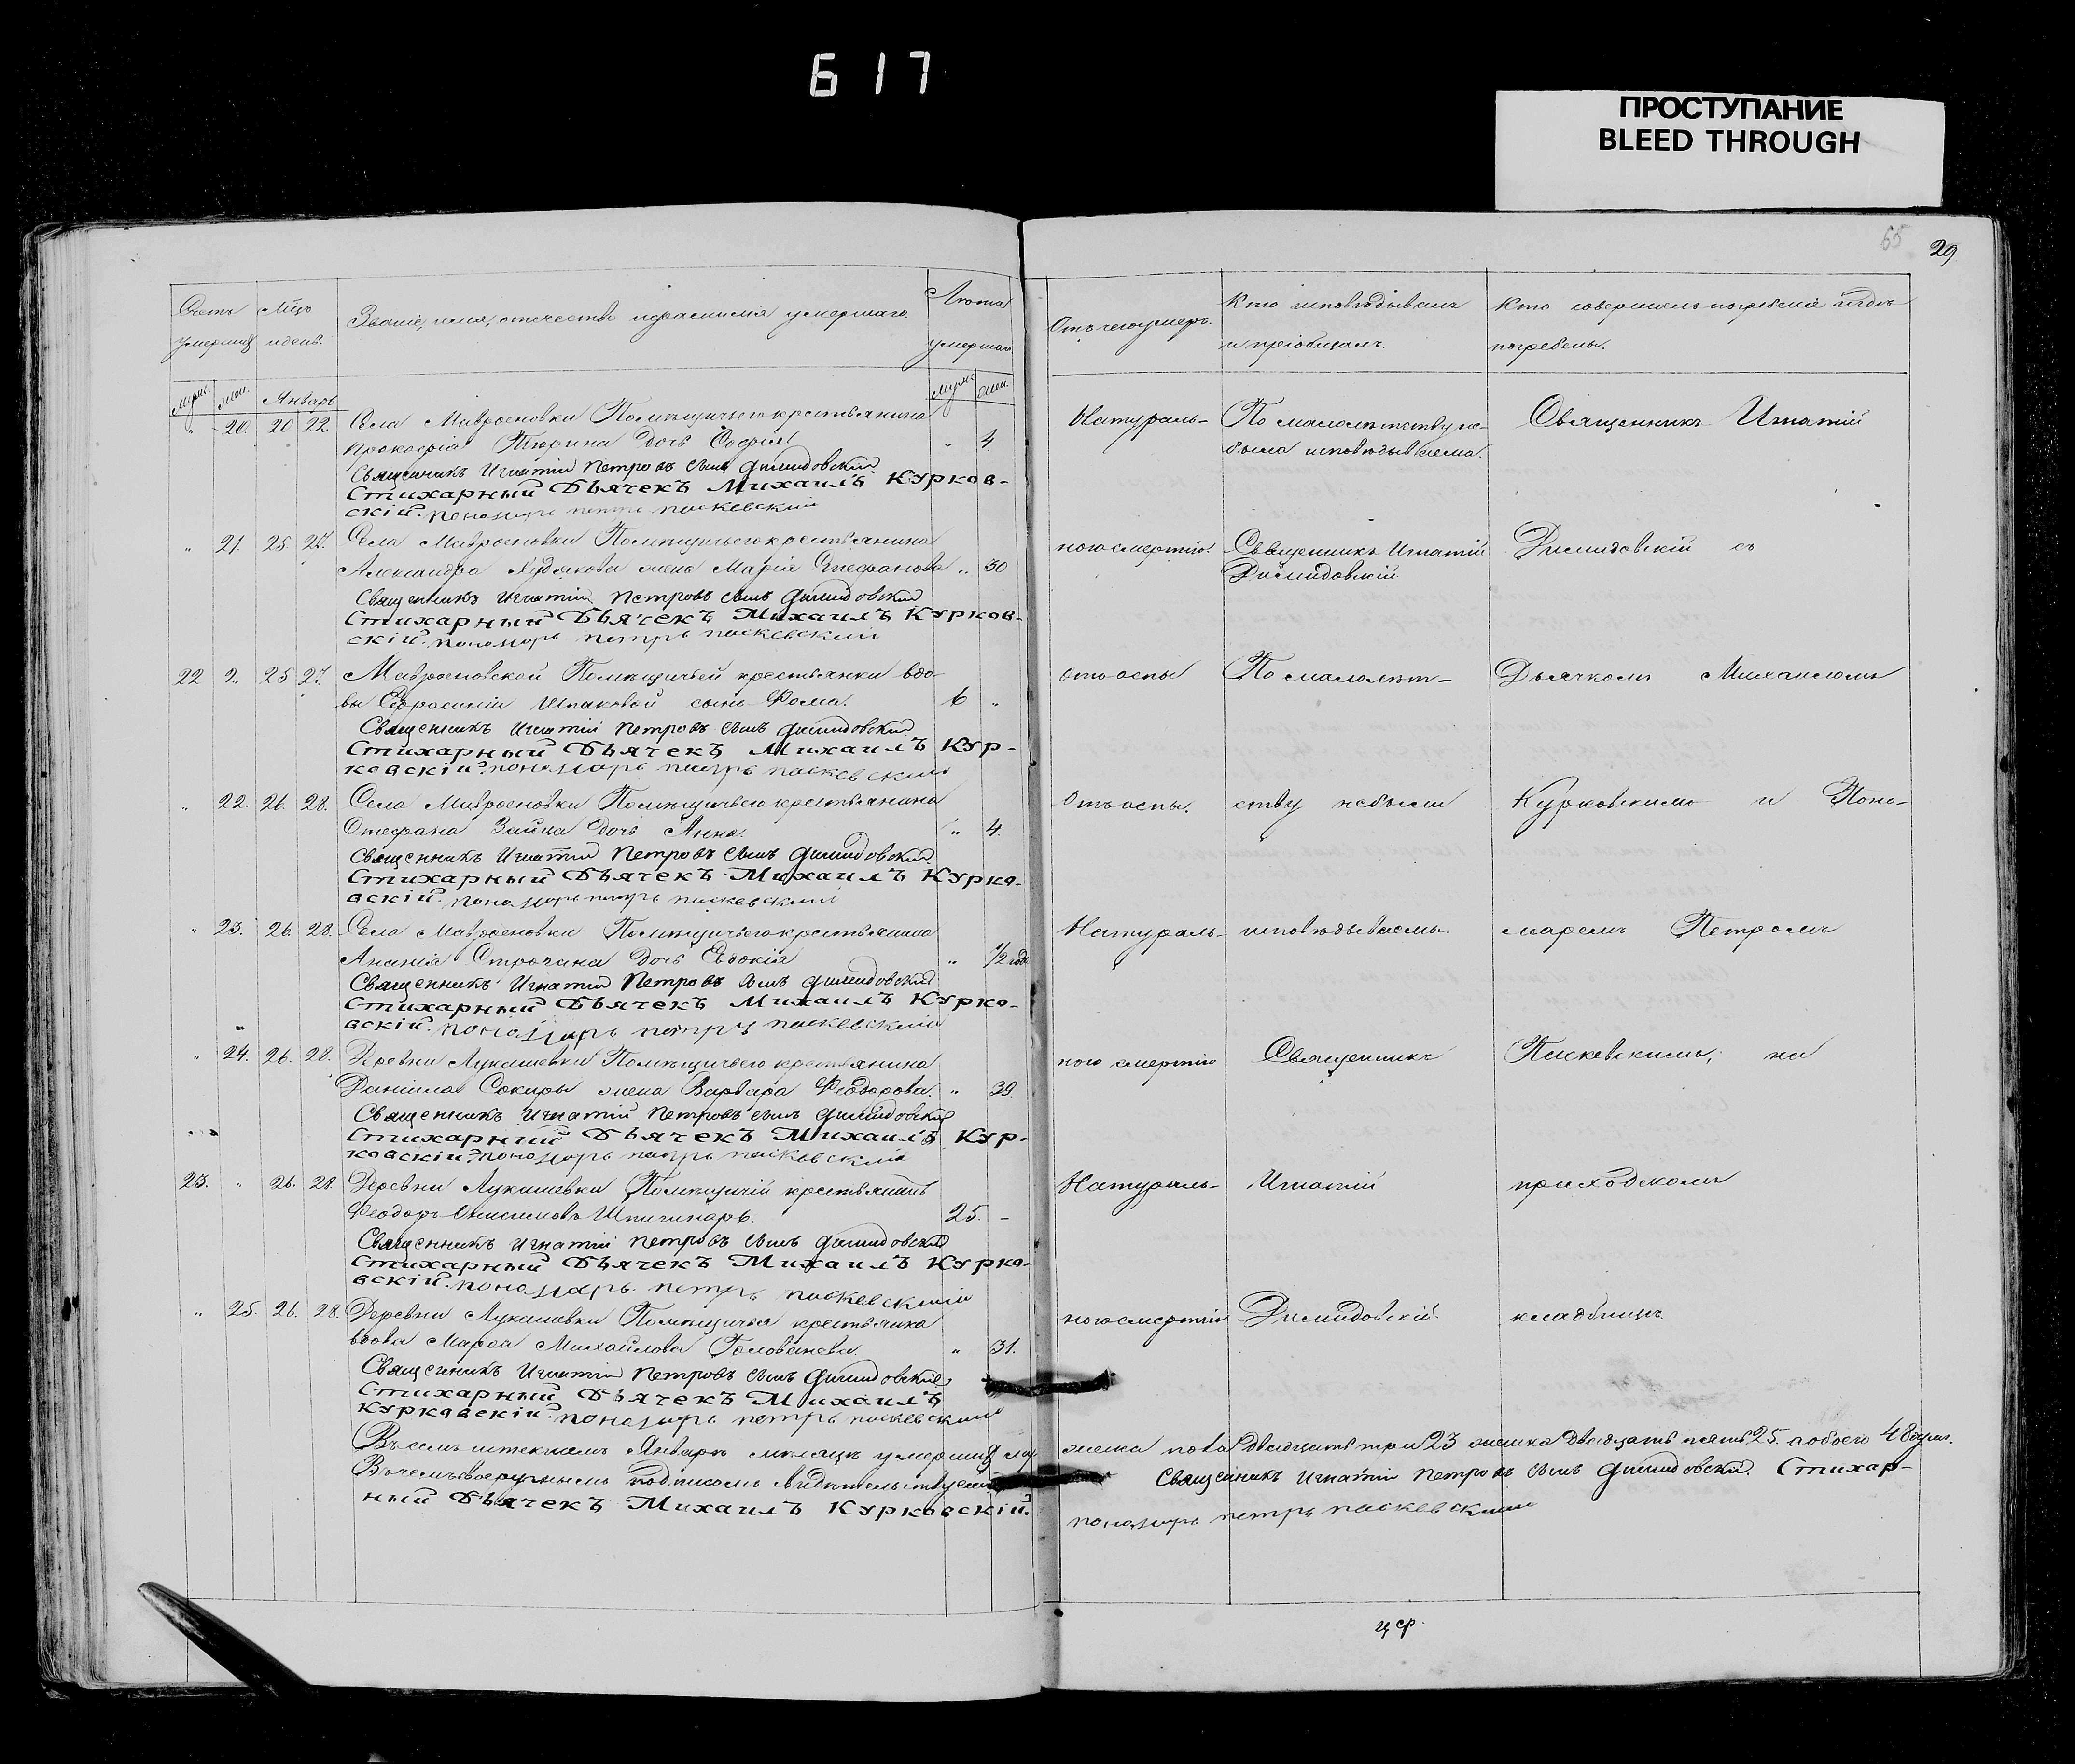 617
ПРОСТУПАНИЕ
BLEED THROUGH
65 29
Счетъ умершихъ
Мѣцъ и день.
Званіе, имя, отчество и фамилія умершаго.
Лѣта умершаго.
Отъ чего умеръ.
Кто исповѣдывалъ и пріобщалъ.
Кто совершалъ погребеніе и гдѣ погребены.
Муж. Жен. Январь Муж. Жен.
" 20. 20 22. Села Мавроеновки Помѣщичьего крестьянина
Прокофія Тюрина дочь Софія " 4.
Священникъ Игнатій Петровъ сынъ Димидовскій
Стихарный Дьячекъ Михаилъ Курков-
скій. пономарь петръ паскевскій
Натураль-
По малолѣтству не
была исповѣдываема.
Священникъ Игнатій
" 21. 25. 27. Села Мавроеновки Помѣщичьего крестьянина
Александра Худякова жена Марія Епефанова " 30
Священникъ Игнатій Петровъ сынъ Димидовскій
Стихарный Дьячекъ Михаилъ Курков-
скій. пономарь петръ паскевскій
ною смертію.
Священникъ Игнатій
Димидовскій
Димидовскій съ
22 " 25 27. Мавроеновской Помѣщичьей крестьянки вдо-
вы Ефросиніи Шпаковой сынъ Фома. 6 "
Священникъ Игнатій Петровъ сынъ Димидовскій
Стихарный Дьячекъ Михаилъ Кур-
ковскій. пономарь петръ паскевскій
отъ оспы
По малолѣт-
Дьячкомъ Михаиломъ
" 22. 26. 28. Села Мавроеновки Помѣщичьего крестьянина
Стефана Зайца дочь Анна. " 4.
Священникъ Игнатій Петровъ сынъ Димидовскій
Стихарный Дьячекъ Михаилъ Курко-
вскій. пономарь петръ паскевскій
Отъ оспы.
ству небыли
Курковскимъ и Поно-
" 23. 26. 28. Села Мавроеновки Помѣщичьего крестьянина
Ананія Строчана дочь Евдокія " 1/2 год.
Священникъ Игнатій Петровъ сынъ Димидовскій
Стихарный Дьячекъ Михаилъ Курко-
вскій. пономарь петръ паскевскій
Натураль-
исповѣдываемы.
маремъ Петромъ
" 24. 26. 28. Деревни Лукашевки Помѣщичьего крестьянина
Даніила Сокиры жена Варвара Феодорова. " 39.
Священникъ Игнатій Петровъ сынъ Димидовскій
Стихарный Дьячекъ Михаилъ Кур-
ковскій. пономарь петръ паскевскій
ною смертію
Священникъ
Паскевскимъ, на
23. " 26. 28. Деревни Лукашевки Помѣщичій крестьянинъ
Феодоръ Анисимовъ Шпичинаръ. 25. -
Священникъ Игнатій Петровъ сынъ Димидовскій
Стихарный Дьячекъ Михаилъ Курко-
вскій. пономарь петръ паскевскій
Натураль-
Игнатій
приходскомъ
" 25. 26. 28. Деревни Лукашевки Помѣщичья крестьянка
вдова Марфа Михайлова Голованова. " 31.
Священникъ Игнатій Петровъ сынъ Димидовскій
Стихарный Дьячекъ Михаилъ
Курковскій. пономарь петръ паскевскій
ною смертію
Димидовскій.
кладбищѣ.
Въ семъ истекшемъ Январѣ мѣсяцѣ умершихъ мужеска пола двадцать три 23 женска двадцать пять 25. а обоего 48 душъ.
Въ чемъ своеручнымъ подписомъ свидѣтельствуемъ Священникъ Игнатій Петровъ сынъ Димидовскій. Стихар-
ный Дьячекъ Михаилъ Курковскій. пономарь петръ паскевскій